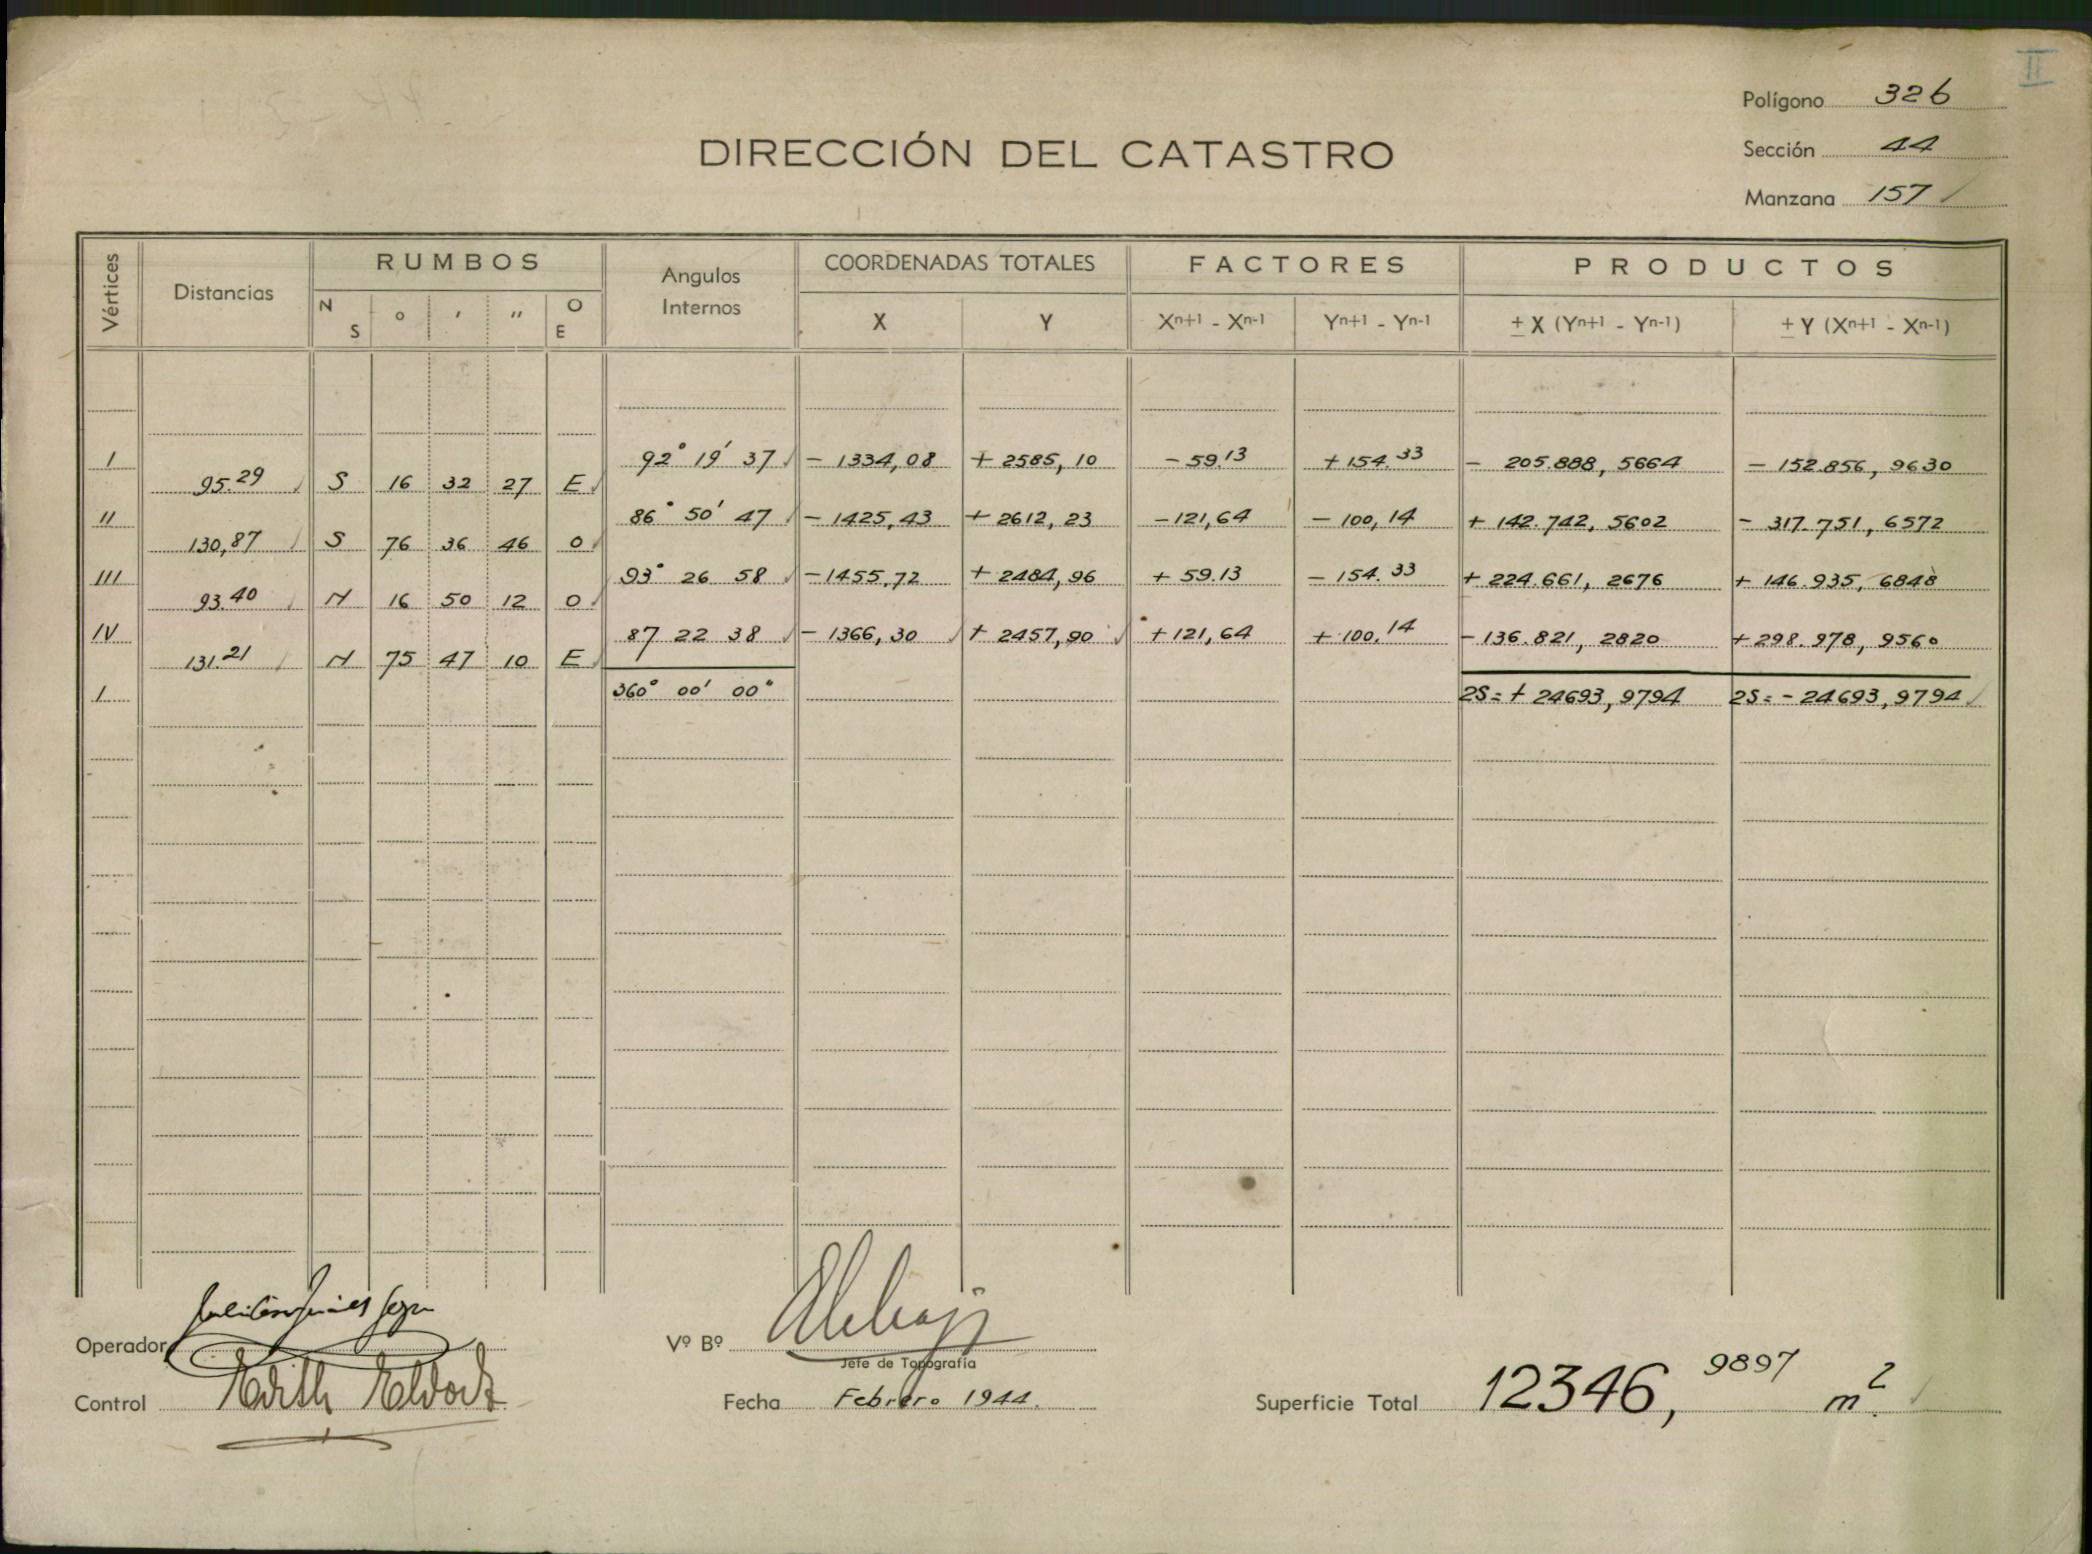 II
Polígono 326
Sección 44
Manzana 157
DIRECCIÓN DEL CATASTRO
Vértices Distancias RUMBOS Angulos Internos COORDENADAS TOTALES FACTORES PRODUCTOS
N S ° ′ ″ O E X Y Xn+1 - Xn-1 Yn+1 - Yn-1 ± X (Yn+1 - Yn-1) ± Y (Xn+1 - Xn-1)
I 92° 19′ 37 - 1334,08 + 2585,10 - 59.13 + 154.33 - 205.888, 5664 - 152.856, 9630
95.29 S 16 32 27 E
II 86° 50′ 47 - 1425,43 + 2612,23 - 121,64 - 100,14 + 142.742, 5602 - 317.751, 6572
130,87 S 76 36 46 O
III 93° 26 58 - 1455,72 + 2484,96 + 59.13 - 154.33 + 224.661, 2676 + 146.935, 6848
93.40 N 16 50 12 O
IV 87 22 38 - 1366,30 + 2457,90 + 121,64 + 100.14 - 136.821, 2820 + 298.978, 9560
131.21 N 75 47 10 E
I 360° 00′ 00″ 2S = + 24693,9794 2S = - 24693,9794
Operador
Vº Bº
Jefe de Topografía
Control Edith
Fecha Febrero 1944.
Superficie Total 12346,9897 m²